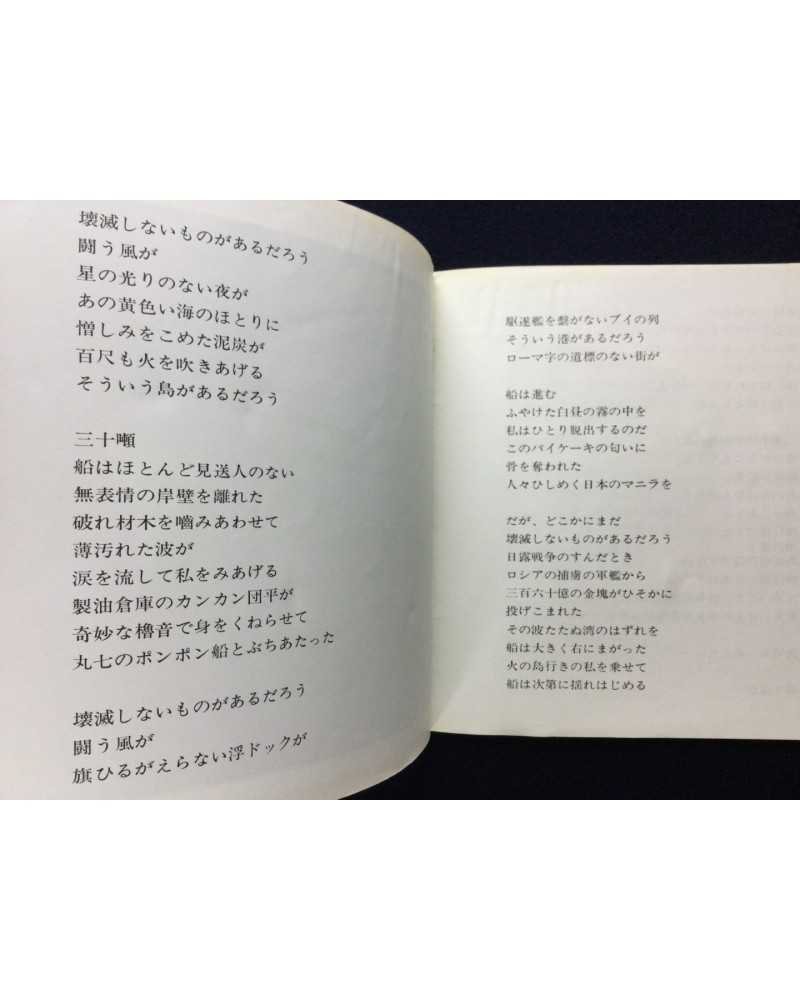 壊滅しないものがあるだろう
闘う風が
星の光りのない夜が
あの黄色い海のほとりに
憎しみをこめた泥炭が
百尺も火を吹きあげる
そういう島があるだろう
三十噸
船はほとんど見送人のない
無表情の岸壁を離れた
破れ材木を嚙みあわせて
薄汚れた波が
涙を流して私をみあげる
製油倉庫のカンカン団平が
奇妙な櫓音で身をくねらせて
丸七のポンポン船とぶちあたった
壊滅しないものがあるだろう
闘う風が
旗ひるがえらない浮ドックが
駆逐艦を繫がないブイの列
そういう港があるだろう
ローマ字の道標のない街が
船は進む
ふやけた白昼の霧の中を
私はひとり脱出するのだ
このパイケーキの匂いに
骨を奪われた
人々ひしめく日本のマニラを
だが、どこかにまだ
壊滅しないものがあるだろう
日露戦争のすんだとき
ロシアの捕虜の軍艦から
三百六十億の金塊がひそかに
投げこまれた
その波たたぬ湾のはずれを
船は大きく右にまがった
火の島行きの私を乗せて
船は次第に揺れはじめる